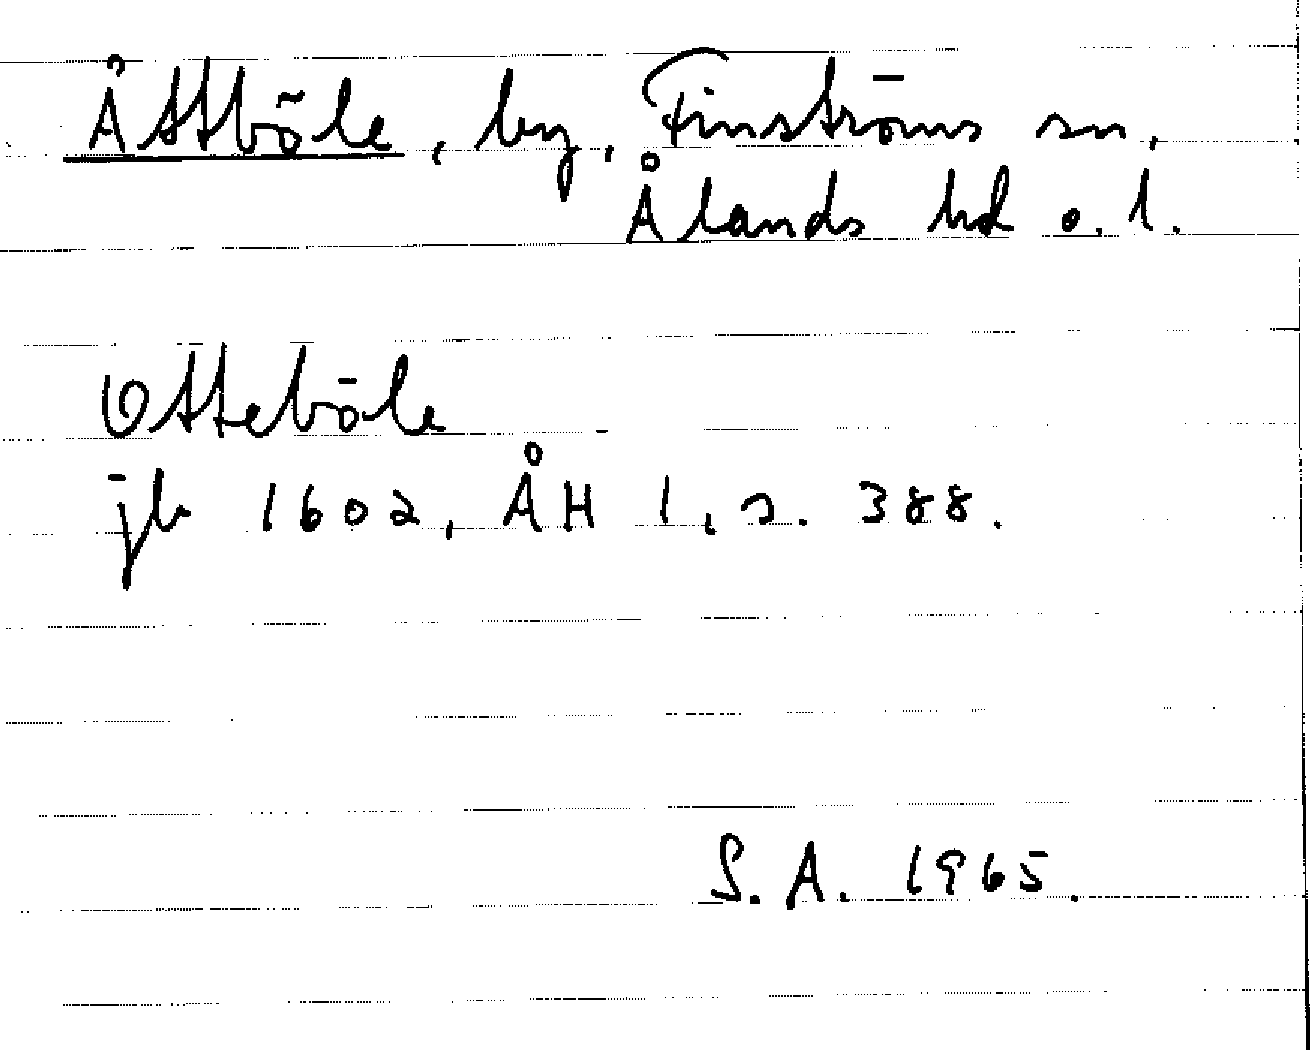 Åttböle, by, Finströms sn,
Ålands hd o. l.
Otteböle
jb 1602, ÅH 1, s. 388.
S. A. 1965.